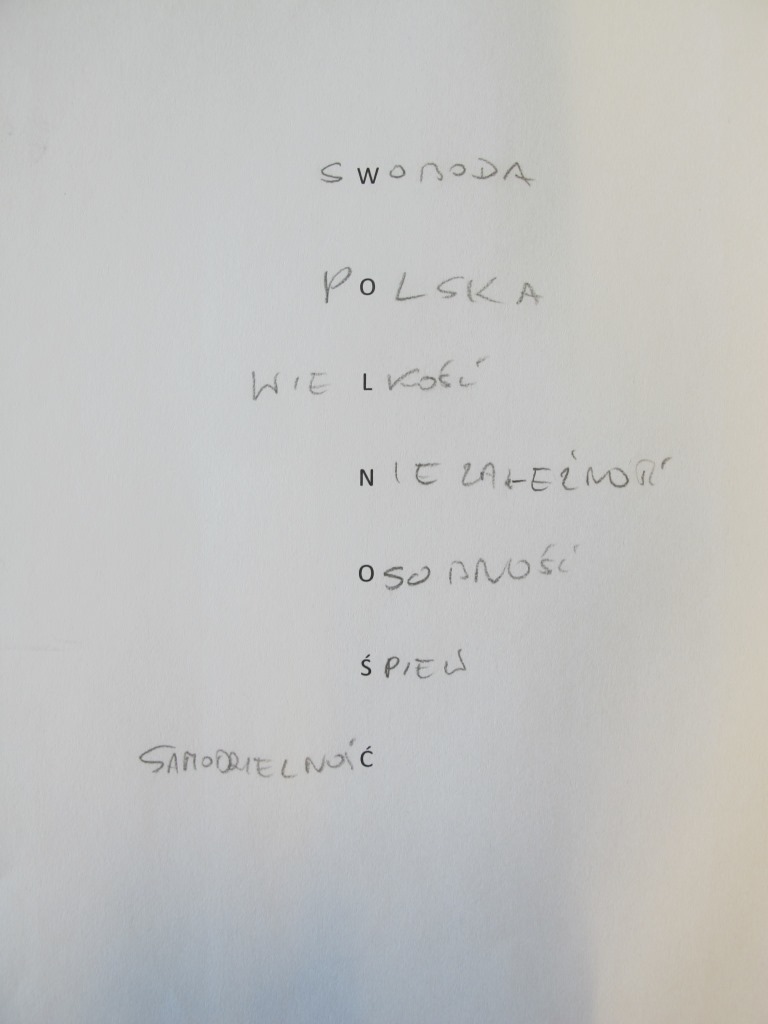 SWOBODA
POLSKA
WIELKOŚĆ
NIEZALEŻNOŚĆ
OSOBNOŚĆ
ŚPIEW
SAMODZIELNOŚĆ